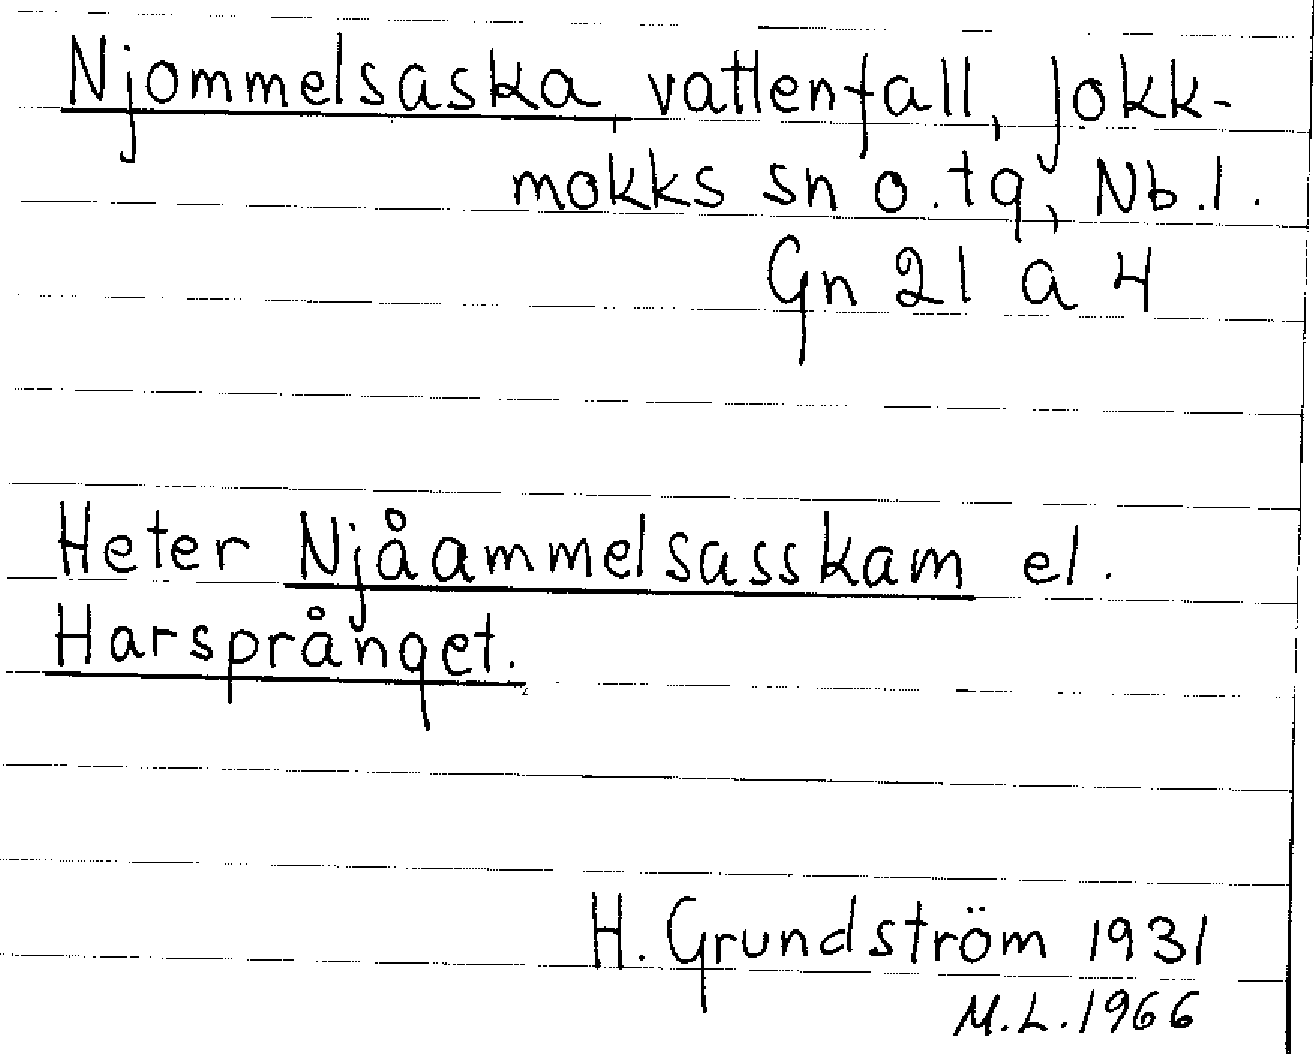 Njommelsaska, vattenfall, Jokk-
mokks sn o. tg, Nb. l.
Gn 21 a 4
Heter Njåammelsasskam el.
Harsprånget.
H. Grundström 1931
M.L. 1966